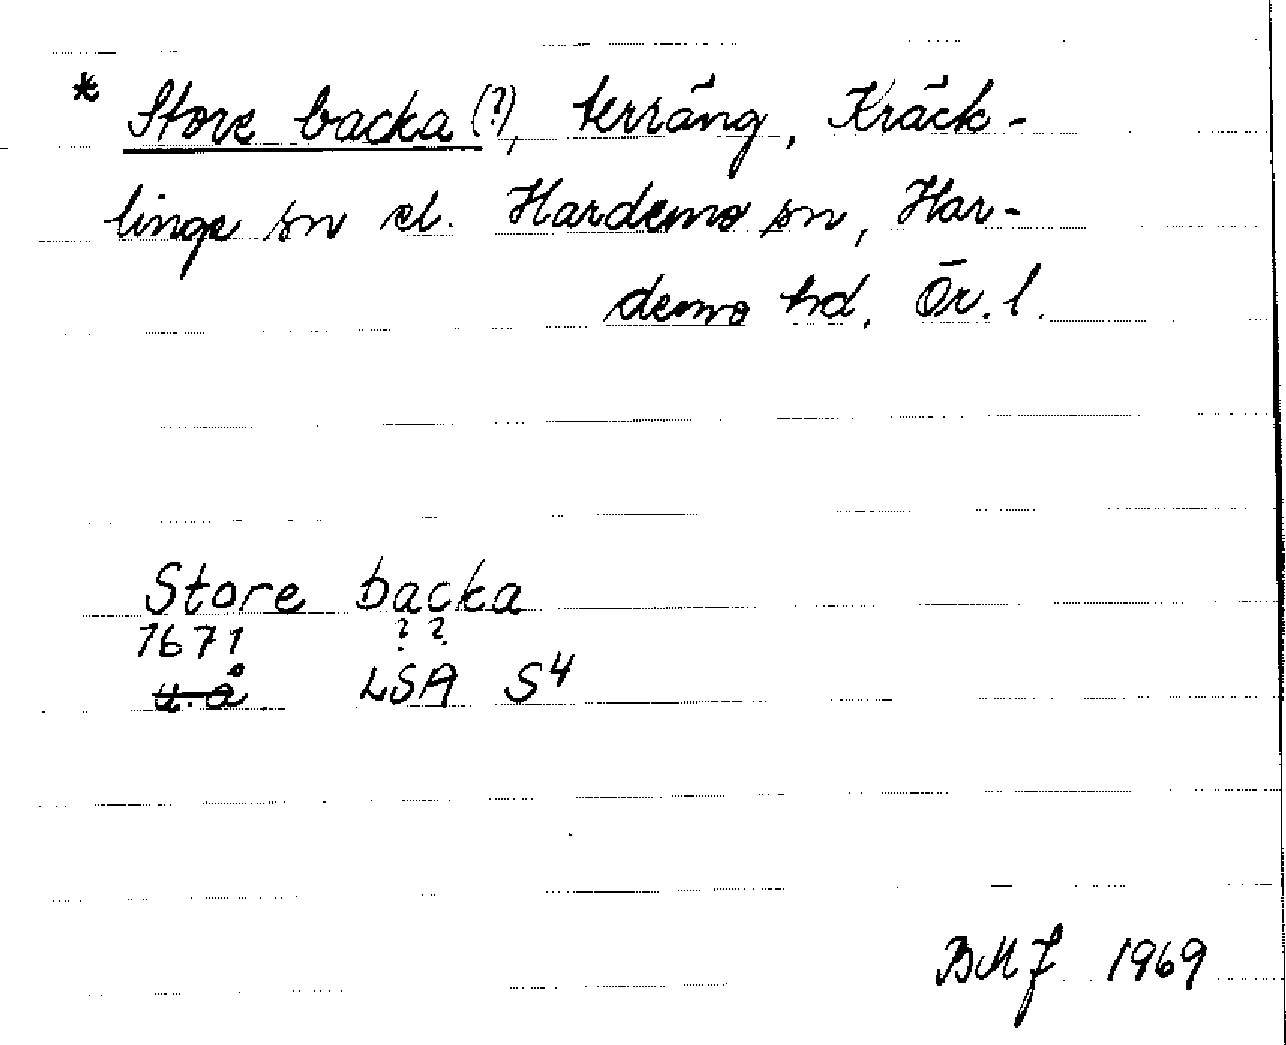 * Store backa (?), terräng, Kräck-
linge sn el. Hardemo sn, Har-
demo hd, Ör. l.
Store backa
1671 ? ?
u.å LSA S4
BMJ 1969